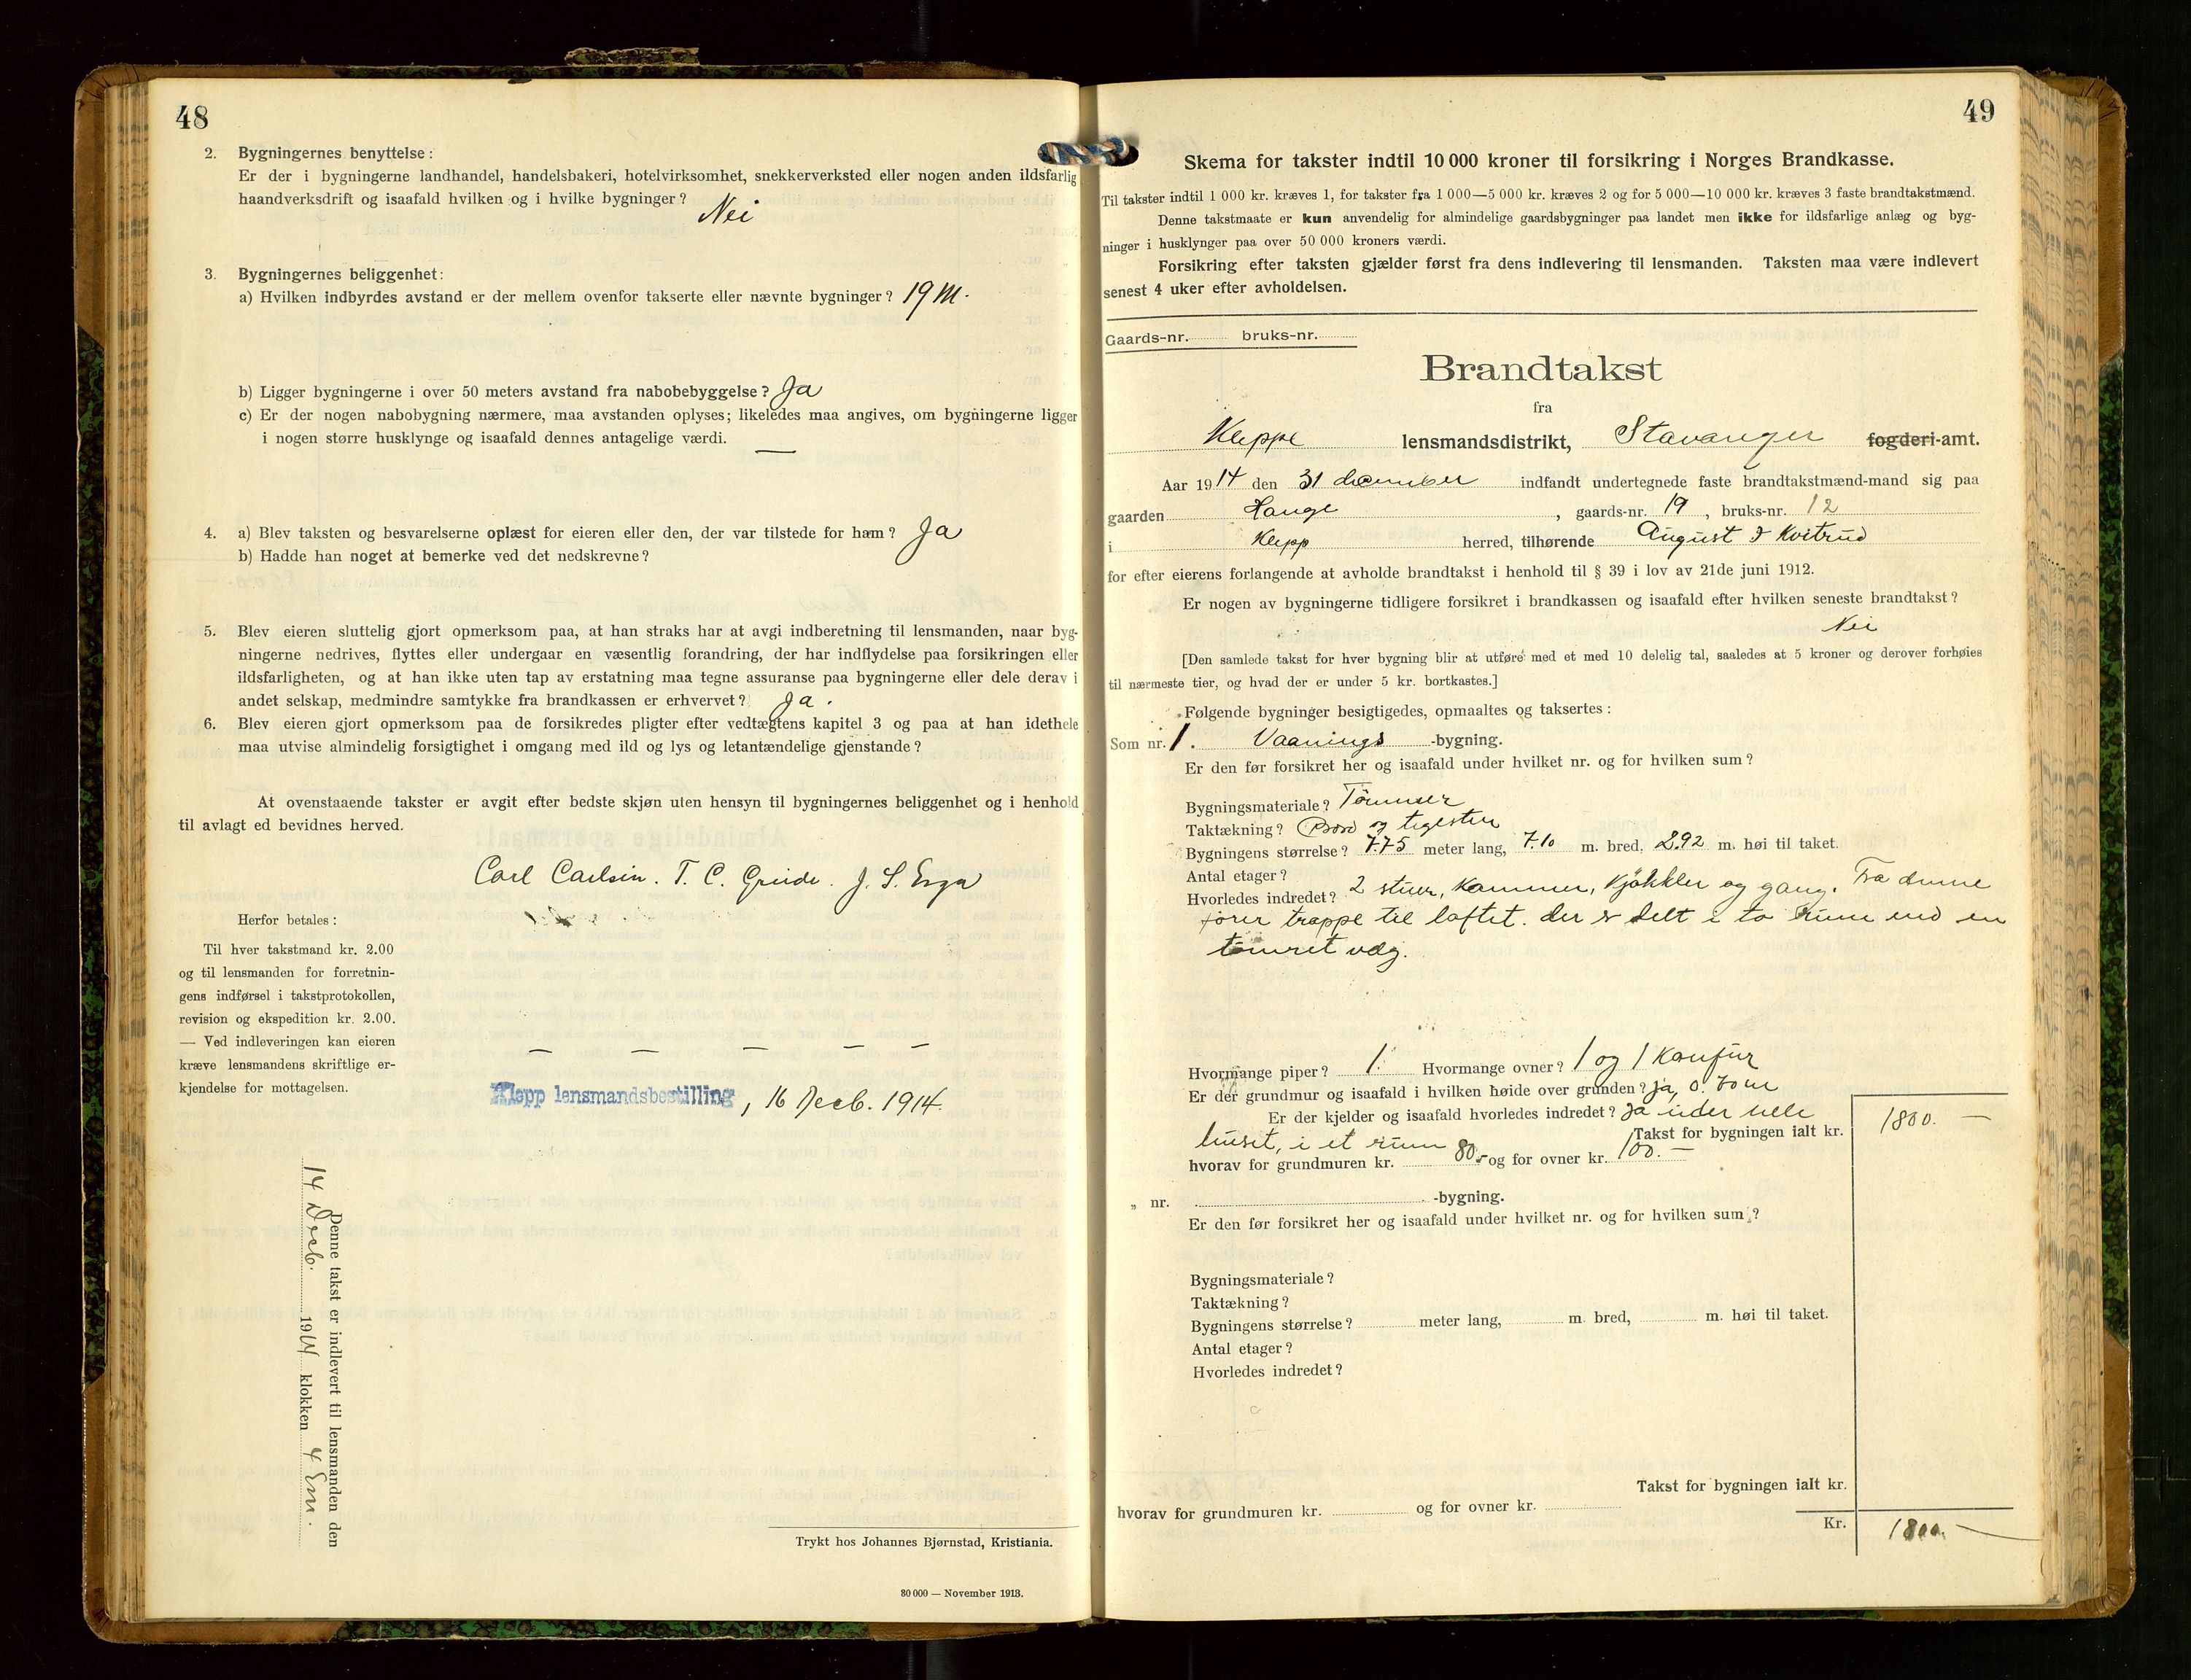 48
2. Bygningernes benyttelse:
Er der i bygningerne landhandel, handelsbakeri, hotelvirksomhet, snekkerverksted eller nogen anden ildsfarlig
haandverksdrift og isaafald hvilken og i hvilke bygninger? Nei
3. Bygningernes beliggenhet:
a) Hvilken indbyrdes avstand er der mellem ovenfor takserte eller nævnte bygninger? 19 M.
b) Ligger bygningerne i over 50 meters avstand fra nabobebyggelse? Ja
c) Er der nogen nabobygning nærmere, maa avstanden oplyses; likeledes maa angives, om bygningerne ligger
i nogen større husklynge og isaafald dennes antagelige værdi. —
4. a) Blev taksten og besvarelserne oplæst for eieren eller den, der var tilstede for ham? Ja
b) Hadde han noget at bemerke ved det nedskrevne?
5. Blev eieren sluttelig gjort opmerksom paa, at han straks har at avgi indberetning til lensmanden, naar byg-
ningerne nedrives, flyttes eller undergaar en væsentlig forandring, der har indflydelse paa forsikringen eller
ildsfarligheten, og at han ikke uten tap av erstatning maa tegne assuranse paa bygningerne eller dele derav i
andet selskap, medmindre samtykke fra brandkassen er erhvervet? Ja.
6. Blev eieren gjort opmerksom paa de forsikredes pligter efter vedtægtens kapitel 3 og paa at han idethele
maa utvise almindelig forsigtighet i omgang med ild og lys og letantændelige gjenstande?
At ovenstaaende takster er avgit efter bedste skjøn uten hensyn til bygningernes beliggenhet og i henhold
til avlagt ed bevidnes herved.
Carl Carlsen. T. C. Grude. J. S. Erga
Herfor betales:
Til hver takstmand kr. 2.00
og til lensmanden for forretnin-
gens indførsel i takstprotokollen,
revision og ekspedition kr. 2.00.
— Ved indleveringen kan eieren
kræve lensmandens skriftlige er-
kjendelse for mottagelsen.
— — — — —
Klepp lensmandsbestilling, 16 Decb. 1914.
Denne takst er indlevert til lensmanden den
14 Decb. 1914 klokken 4 Em.
Trykt hos Johannes Bjørnstad, Kristiania.
30 000 — November 1913.
49
Skema for takster indtil 10 000 kroner til forsikring i Norges Brandkasse.
Til takster indtil 1 000 kr. kræves 1, for takster fra 1 000—5 000 kr. kræves 2 og for 5 000—10 000 kr. kræves 3 faste brandtakstmænd.
Denne takstmaate er kun anvendelig for almindelige gaardsbygninger paa landet men ikke for ildsfarlige anlæg og byg-
ninger i husklynger paa over 50 000 kroners værdi.
Forsikring efter taksten gjælder først fra dens indlevering til lensmanden. Taksten maa være indlevert
senest 4 uker efter avholdelsen.
Gaards-nr. bruks-nr.
Brandtakst
fra
Kleppe lensmandsdistrikt, Stavanger fogderi-amt.
Aar 1914 den 31 december indfandt undertegnede faste brandtakstmænd-mand sig paa
gaarden Hauge, gaards-nr. 19, bruks-nr. 12
i Klepp herred, tilhørende August I Kvitrud
for efter eierens forlangende at avholde brandtakst i henhold til § 39 i lov av 21de juni 1912.
Er nogen av bygningerne tidligere forsikret i brandkassen og isaafald efter hvilken seneste brandtakst?
Nei
[Den samlede takst for hver bygning blir at utføre med et med 10 delelig tal, saaledes at 5 kroner og derover forhøies
til nærmeste tier, og hvad der er under 5 kr. bortkastes.]
Følgende bygninger besigtigedes, opmaaltes og taksertes:
Som nr. 1. Vaanings -bygning.
Er den før forsikret her og isaafald under hvilket nr. og for hvilken sum?
Bygningsmateriale? Tømmer
Taktækning? Bord og teglsten
Bygningens størrelse? 7.75 meter lang, 7.10 m. bred, 2.92 m. høi til taket.
Antal etager?
Hvorledes indredet? 2 stuer, kammer, kjøkken og gang. Fra denne
fører trappe til loftet. der er delt i to rum med en
tømret væg.
Hvormange piper? 1. Hvormange ovner? 1 og 1 Komfur
Er der grundmur og isaafald i hvilken høide over grunden? ja, 0.70 m
Er der kjelder og isaafald hvorledes indredet? Ja under hele
huset, i et rum Takst for bygningen ialt kr. 1800. —
hvorav for grundmuren kr. 80.- og for ovner kr. 100. —
„ nr. -bygning.
Er den før forsikret her og isaafald under hvilket nr. og for hvilken sum?
Bygningsmateriale?
Taktækning?
Bygningens størrelse? meter lang, m. bred, m. høi til taket.
Antal etager?
Hvorledes indredet?
Takst for bygningen ialt kr.
hvorav for grundmuren kr. og for ovner kr.
Kr. 1800. —